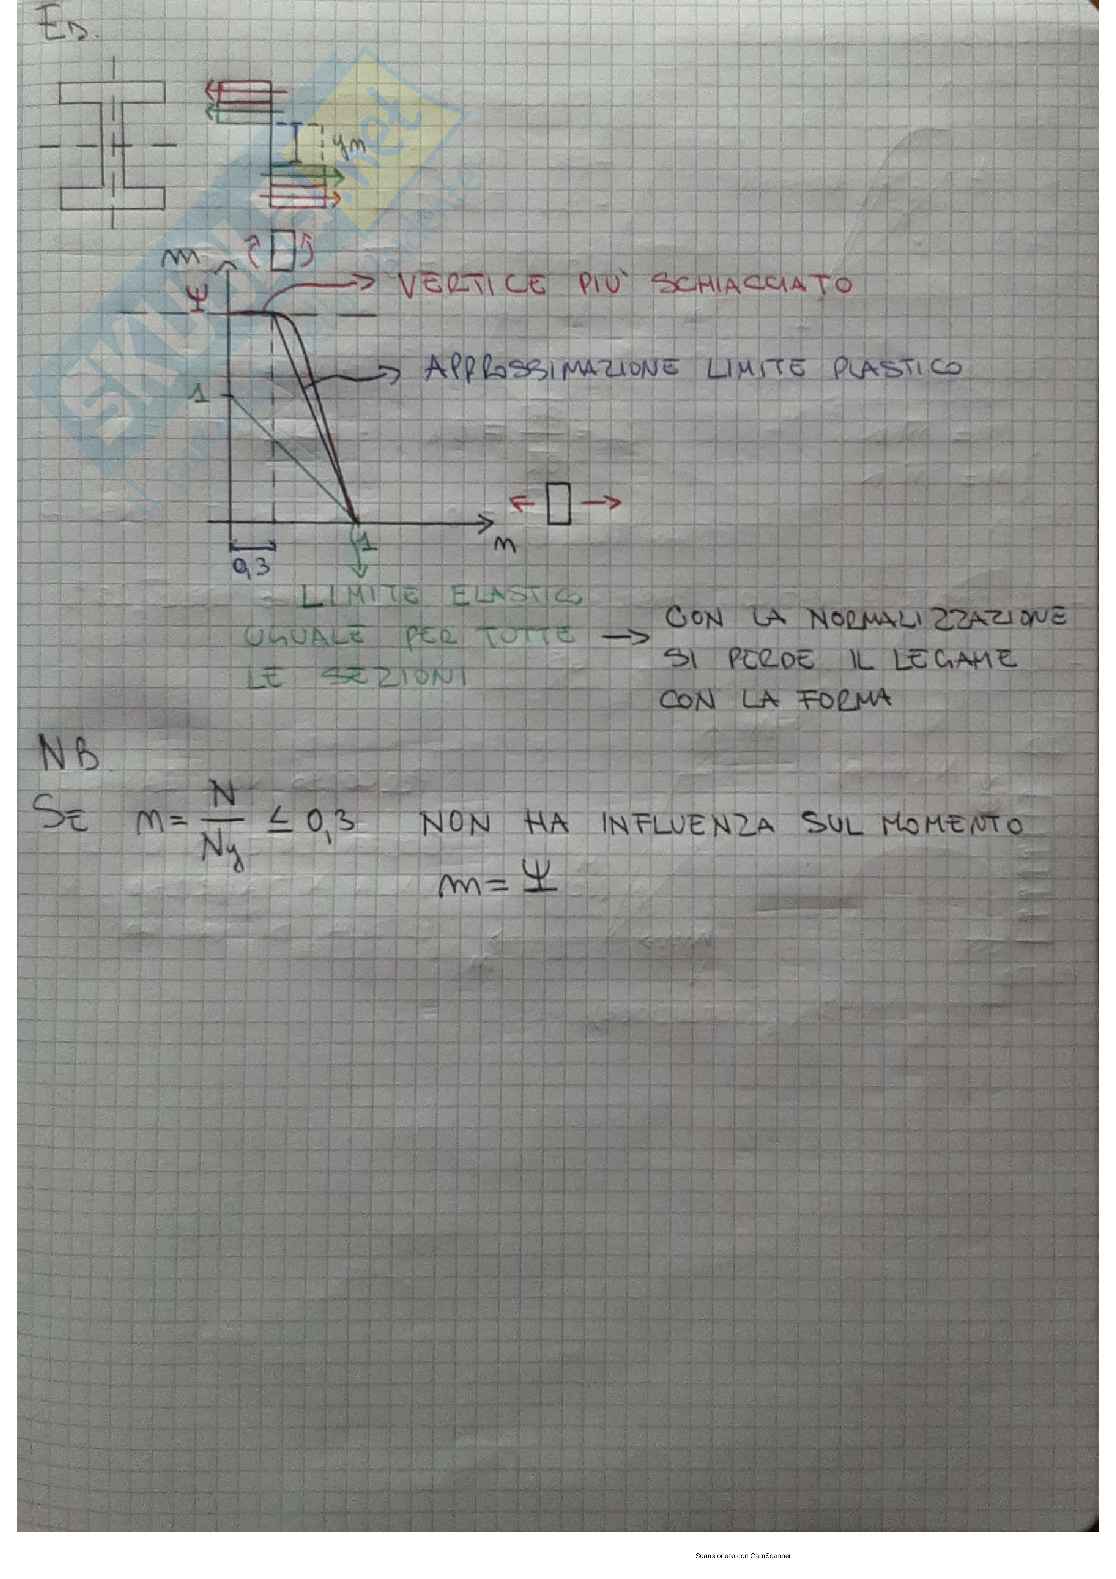 Es.
yn
m
Ψ
VERTICE PIÙ SCHIACCIATO
APPROSSIMAZIONE LIMITE PLASTICO
1
n
1
0,3
LIMITE ELASTICO
UGUALE PER TUTTE
LE SEZIONI
→ CON LA NORMALIZZAZIONE
SI PERDE IL LEGAME
CON LA FORMA
NB
SE n = N/Ny ≤ 0,3 NON HA INFLUENZA SUL MOMENTO
m = Ψ
SKUOLA.net